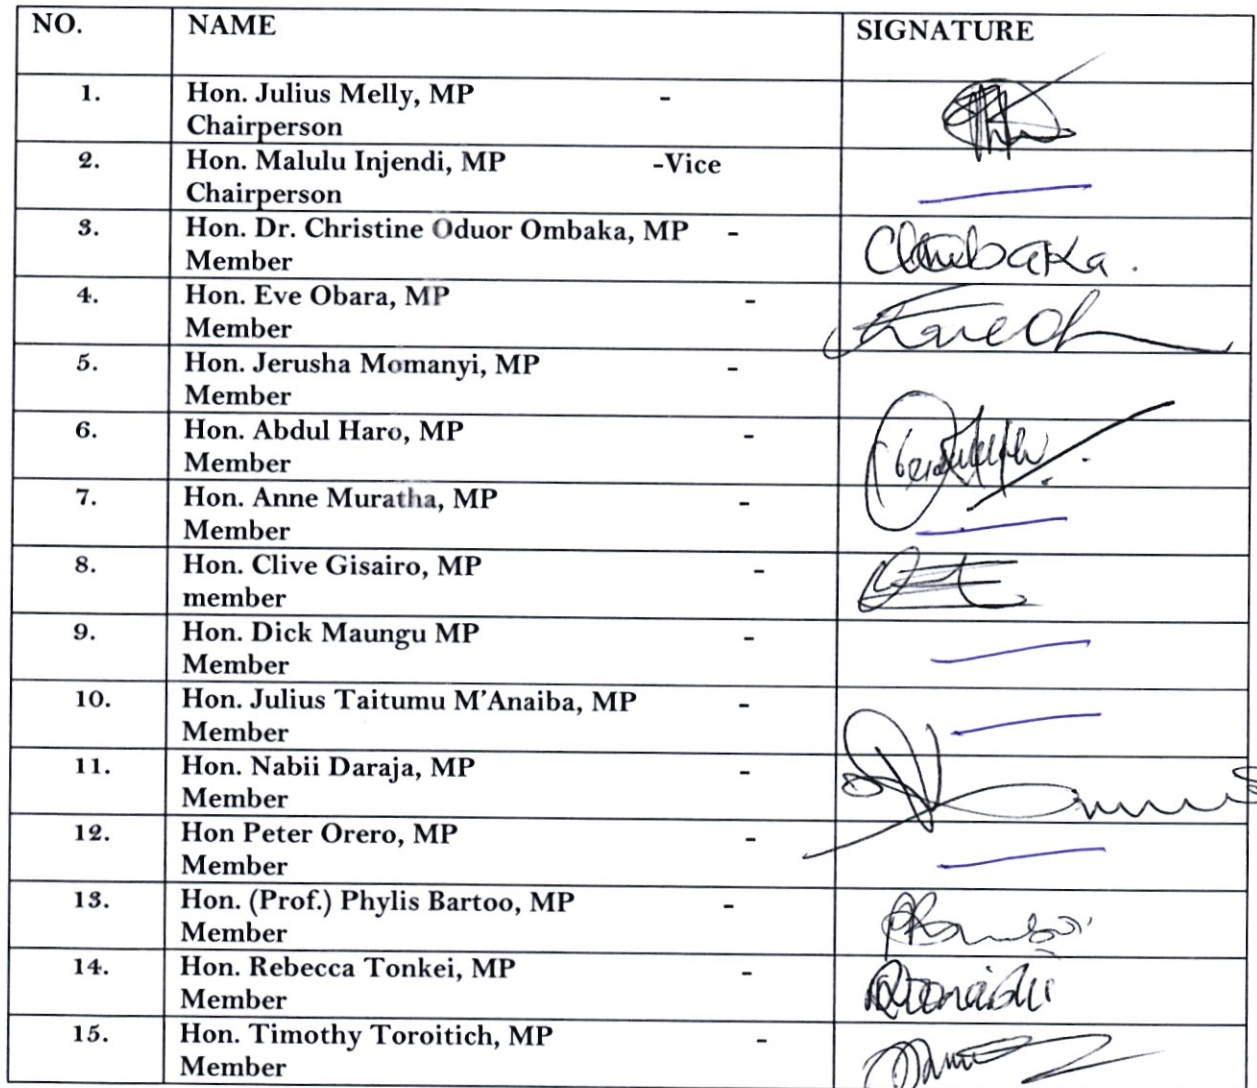 NO. NAME SIGNATURE
1. Hon. Julius Melly, MP -
Chairperson
2. Hon. Malulu Injendi, MP -Vice
Chairperson
3. Hon. Dr. Christine Oduor Ombaka, MP -
Member
4. Hon. Eve Obara, MP -
Member
5. Hon. Jerusha Momanyi, MP -
Member
6. Hon. Abdul Haro, MP -
Member
7. Hon. Anne Muratha, MP -
Member
8. Hon. Clive Gisairo, MP -
member
9. Hon. Dick Maungu MP -
Member
10. Hon. Julius Taitumu M'Anaiba, MP -
Member
11. Hon. Nabii Daraja, MP -
Member
12. Hon Peter Orero, MP -
Member
13. Hon. (Prof.) Phylis Bartoo, MP -
Member
14. Hon. Rebecca Tonkei, MP -
Member
15. Hon. Timothy Toroitich, MP -
Member